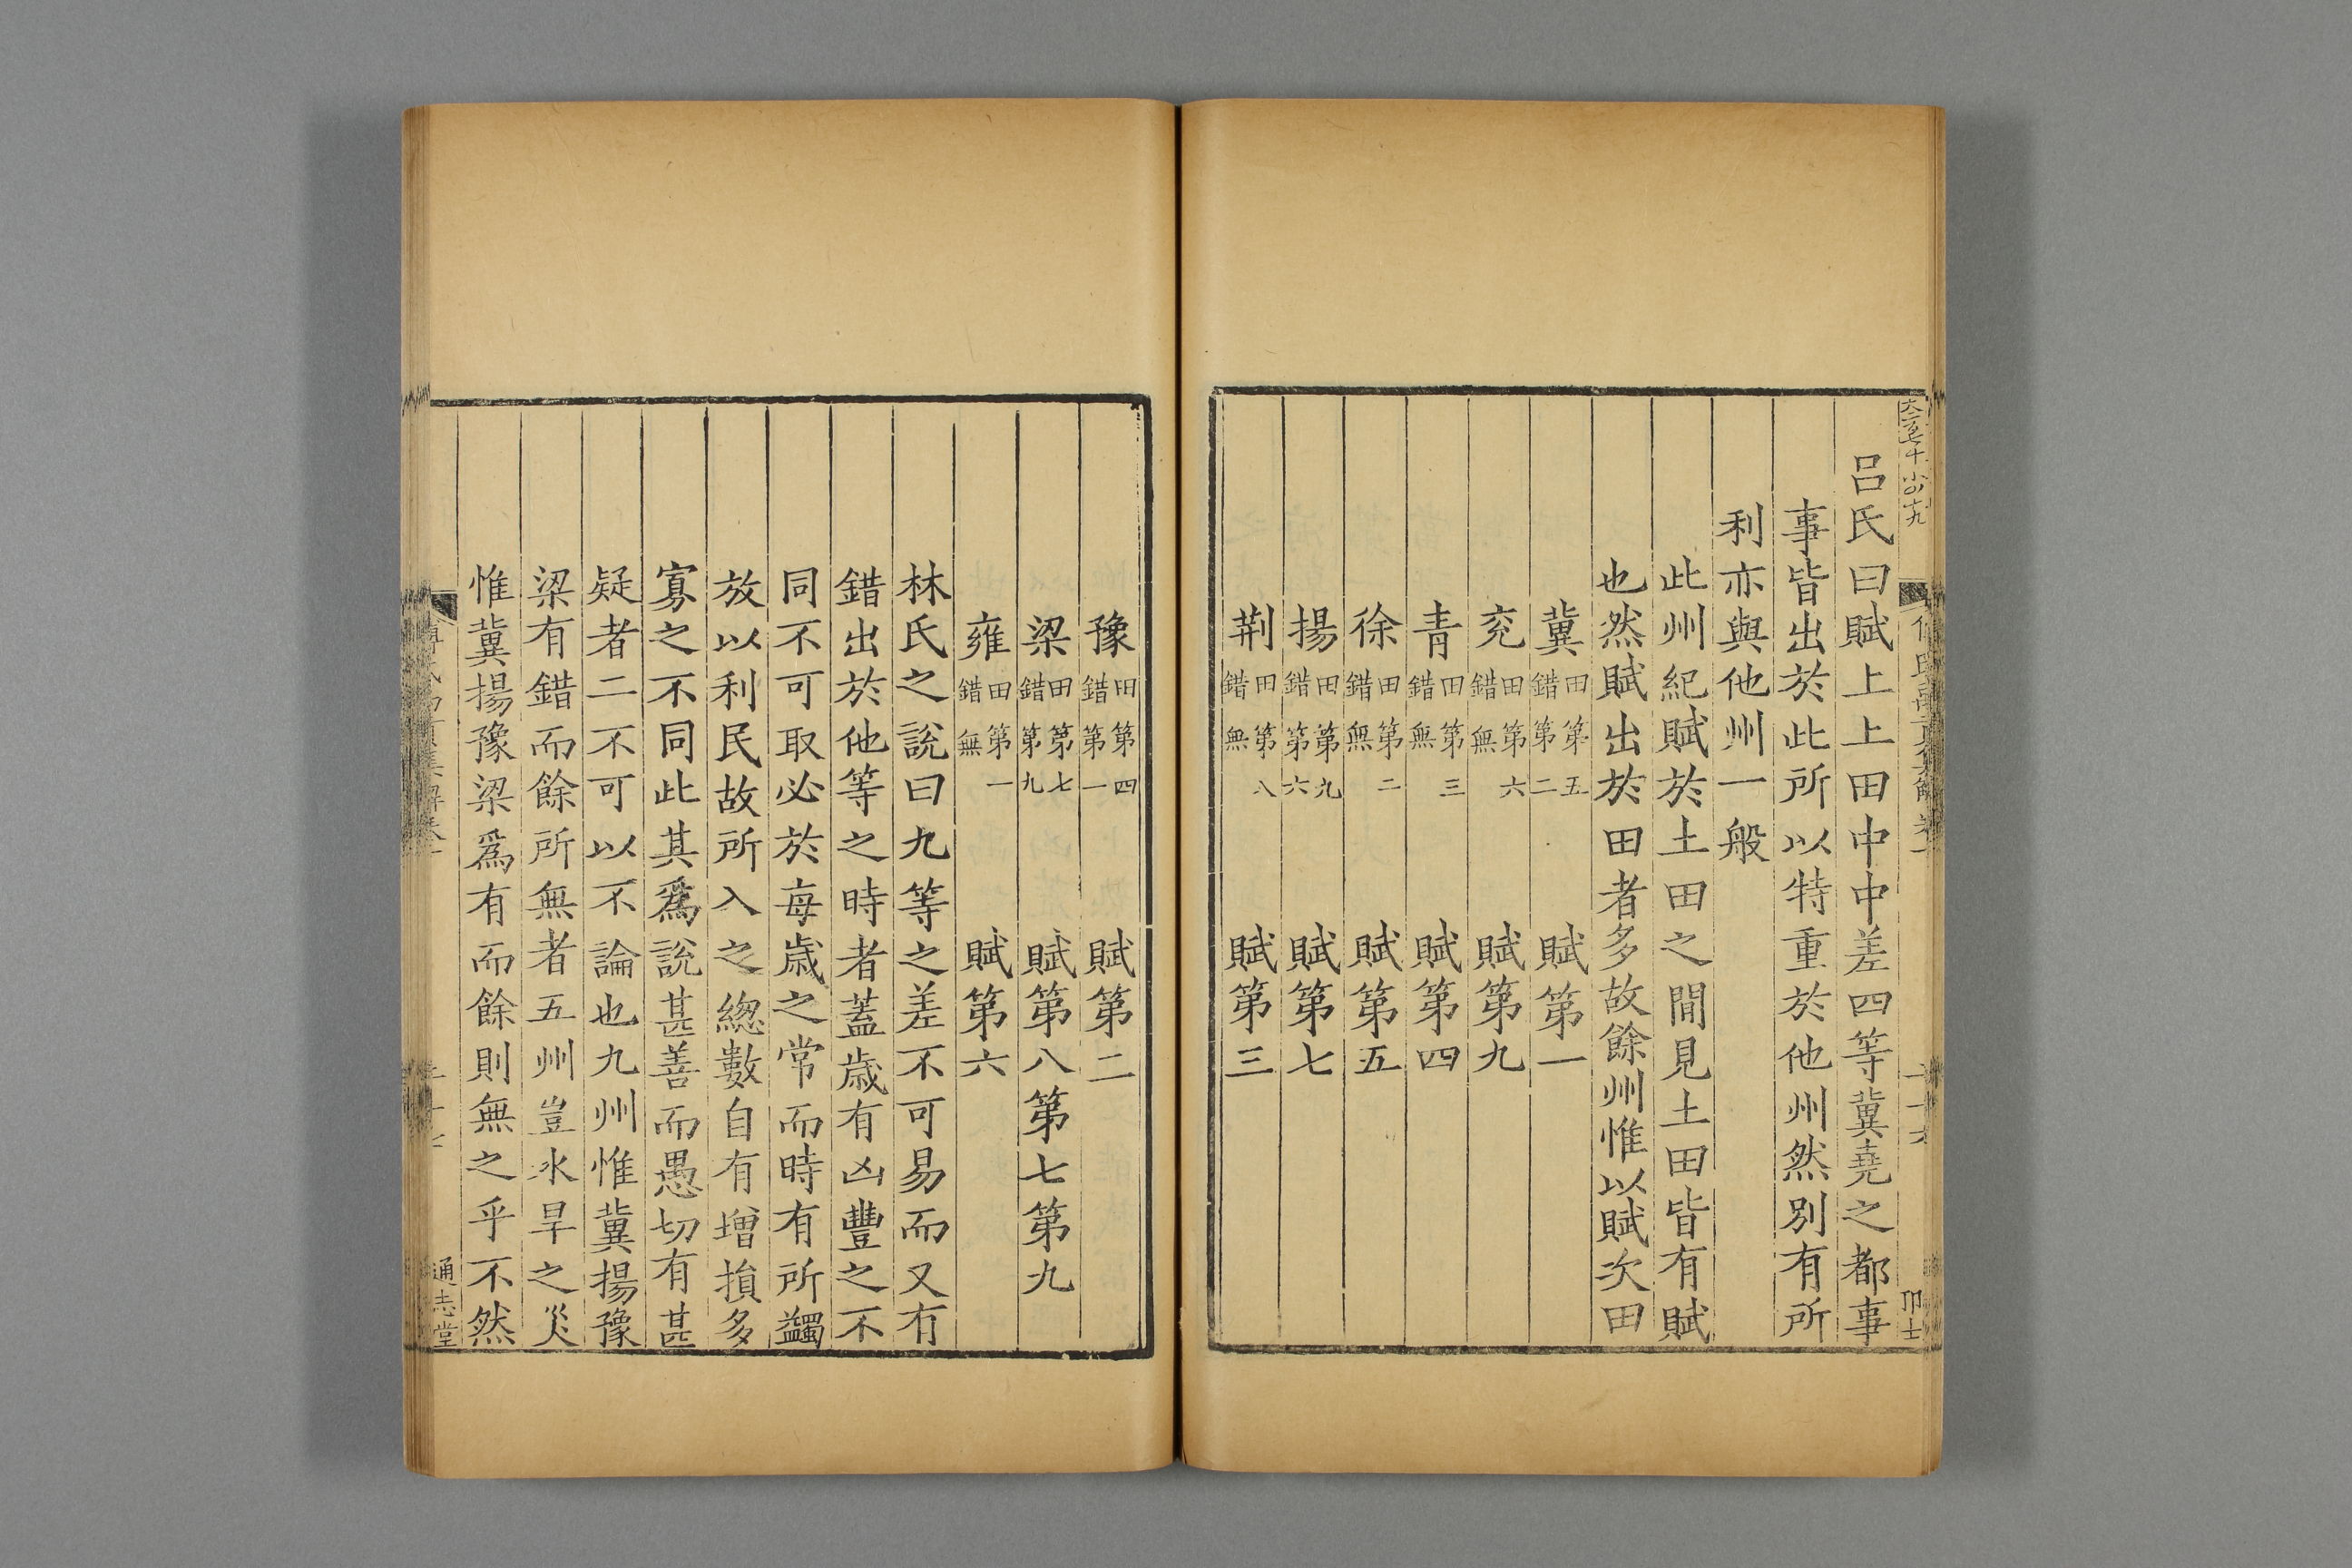 呂氏曰賦上上田中中差四等冀堯之都事
事皆出於此所以特重於他州然別有所
利亦與他州一般
此州紀賦於土田之間見土田皆有賦
也然賦出於田者多故餘州惟以賦次田
冀田第五錯第二賦第一
兖田第六錯無賦第九
青田第三錯無賦第四
徐田第二錯無賦第五
揚田第九錯第六賦第七
荆田第八錯無賦第三
豫田第四錯第一賦第二
梁田第七錯第九賦第八第七第九
雍田第一錯無賦第六
林氏之說曰九等之差不可易而又有
錯出於他等之時者蓋歲有凶豐之不
同不可取必於每歲之常而時有所蠲
放以利民故所入之總數自有增損多
寡之不同此其爲說甚善而愚切有甚
疑者二不可以不論也九州惟冀揚豫
梁有錯而餘所無者五州豈水旱之災
惟冀揚豫梁爲有而餘則無之乎不然
通志堂